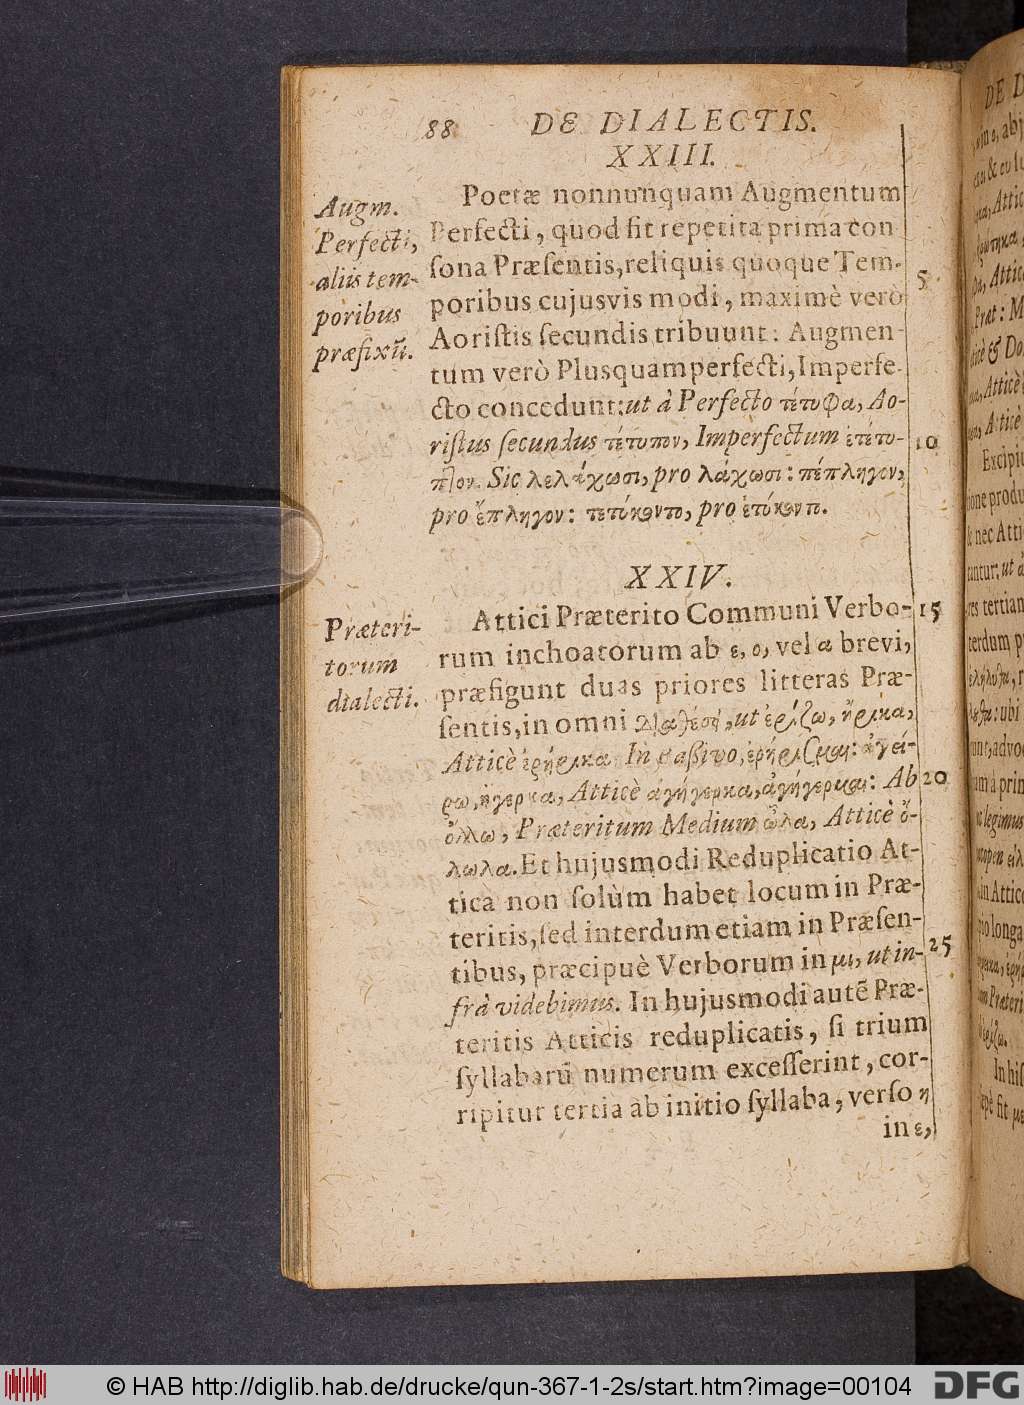 88 DE DIALECTIS.
XXIII.
Augm.
Perfecti,
aliis tem-
poribus
præfixũ.
Poetæ nonnunquam Augmentum
Perfecti, quod fit repetita prima con
ſona Præſentis, reliquis quoque Tem-
5
poribus cujusvis modi, maximè verò
Aoriſtis ſecundis tribuunt: Augmen-
tum verò Plusquamperfecti, Imperfe-
cto concedunt: ut à Perfecto τέτυφα, Ao-
riſtus ſecundus τέτυπον, Imperfectum ἐτέτυ-
10
πτον. Sic λελάχωσι, pro λάχωσι: πέπληγον,
pro ἔπληγον: τετύκοντο, pro ἐτύκοντο.
XXIV.
Præteri-
torum
dialecti.
Attici Præterito Communi Verbo-
15
rum inchoatorum ab ε, ο, vel α brevi,
præfigunt duas priores litteras Præ-
ſentis, in omni διαθέσῃ, ut ἐρίζω, ἤρικα,
Atticè ἐρήρικα. In paſſivo, ἐρήριζμαι: ἀγεί-
ρω, ἤγερκα, Atticè ἀγήγερκα, ἀγήγερμαι: Ab
20
ὄλλω, Præteritum Medium ὦλα, Atticè ὄ-
λωλα. Et hujusmodi Reduplicatio At-
tica non ſolùm habet locum in Præ-
teritis, ſed interdum etiam in Præſen-
tibus, præcipuè Verborum in μι, ut in-
25
frà videbimus. In hujusmodi autẽ Præ-
teritis Atticis reduplicatis, ſi trium
ſyllabarũ numerum exceſſerint, cor-
ripitur tertia ab initio ſyllaba, verſo η
in ε,
© HAB http://diglib.hab.de/drucke/qun-367-1-2s/start.htm?image=00104
DFG